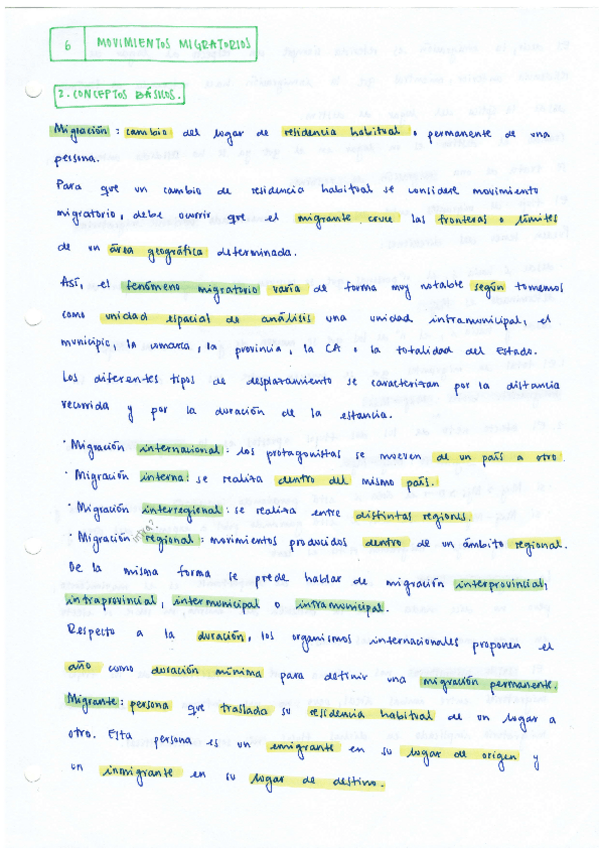 6 MOVIMIENTOS MIGRATORIOS
2. CONCEPTOS BÁSICOS.
Migración: cambio del lugar de residencia habitual o permanente de una
persona.
Para que un cambio de residencia habitual se considere movimiento
migratorio, debe ocurrir que el migrante cruce las fronteras o límites
de un área geográfica determinada.
Así, el fenómeno migratorio varía de forma muy notable según tomemos
como unidad espacial de análisis una unidad intramunicipal, el
municipio, la comarca, la provincia, la CA o la totalidad del Estado.
Los diferentes tipos de desplazamiento se caracterizan por la distancia
recorrida y por la duración de la estancia.
· Migración internacional: los protagonistas se mueven de un país a otro.
· Migración interna: se realiza dentro del mismo país.
· Migración interregional: se realiza entre distintas regiones.
intra?
· Migración regional: movimientos producidos dentro de un ámbito regional.
De la misma forma se puede hablar de migración interprovincial,
intraprovincial, intermunicipal o intramunicipal.
Respecto a la duración, los organismos internacionales proponen el
año como duración mínima para definir una migración permanente.
Migrante: persona que traslada su residencia habitual de un lugar a
otro. Esta persona es un emigrante en su lugar de origen y
un inmigrante en su lugar de destino.